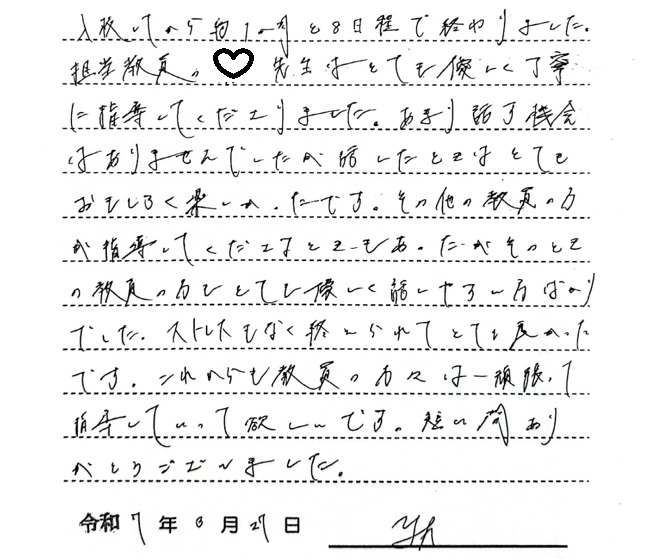 入校してから約1ヶ月と8日程で終わりました。
担当教員の♡先生はとても優しく丁寧
に指導してくださりました。あまり話す機会
はありませんでしたが話したときはとても
おもしろく楽しかったです。その他の教員の方
が指導してくださるときもあったがそのとき
の教員の方もとても優しく話しやすい方ばかり
でした。ストレスもなく終えられてとても良かった
です。これからも教員の方々は頑張って
指導していって欲しいです。短い間あり
がとうございました。
令和7年8月27日